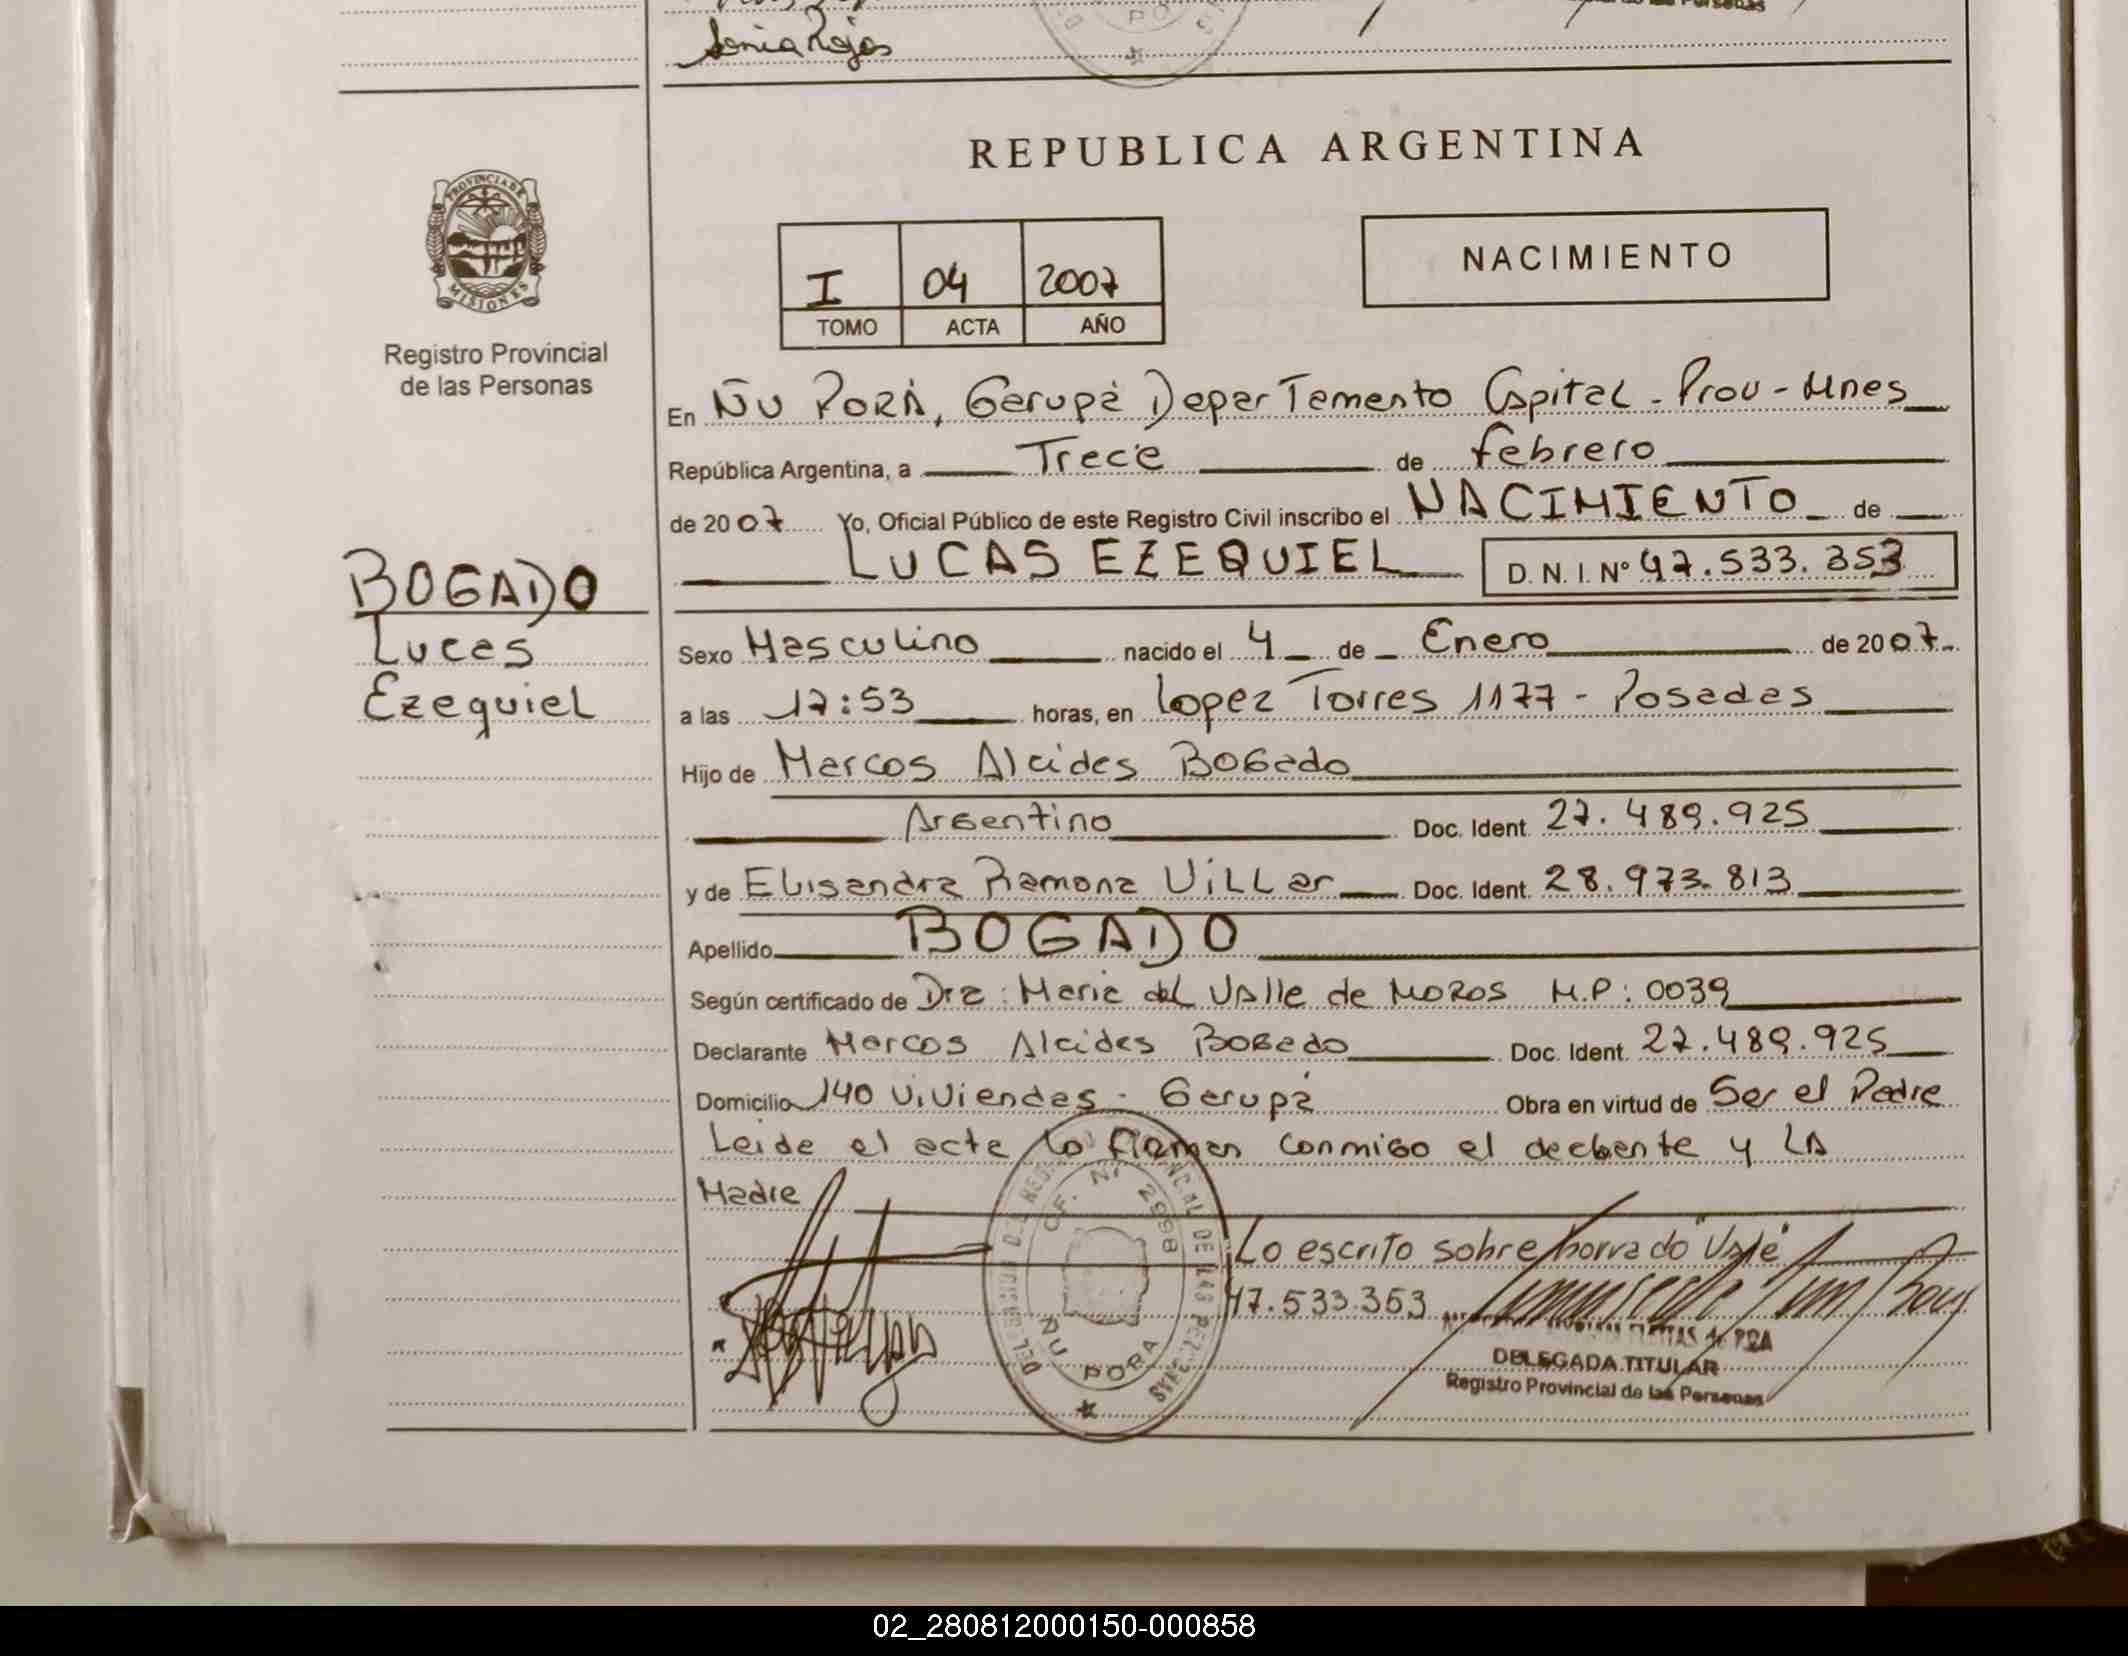 Sonia Rojas
REPUBLICA ARGENTINA
PROVINCIA DE
MISIONES
Registro Provincial
de las Personas
I 04 2007
TOMO ACTA AÑO
NACIMIENTO
En ÑU PORÁ, Garupá Departamento Capital - Prov - Mnes
República Argentina, a Trece de febrero
de 2007 Yo, Oficial Público de este Registro Civil inscribo el NACIMIENTO de
LUCAS EZEQUIEL D.N.I. Nº 47.533.353
BOGADO
Lucas
Ezequiel
Sexo Masculino nacido el 4 de Enero de 2007
a las 17:53 horas, en Lopez Torres 1177 - Posadas
Hijo de Marcos Alcides BOGado
Argentino Doc. Ident. 27.489.925
y de Elisandra Ramona VILLar Doc. Ident. 28.973.813
Apellido BOGADO
Según certificado de Dra: Maria del Valle de MOROS M.P: 0039
Declarante Marcos Alcides BOGado Doc. Ident. 27.489.925
Domicilio 140 viviendas - Garupá Obra en virtud de Ser el Padre
Leida el acta lo firman conmigo el declarante y LA
Madre
Lo escrito sobre borrado "Vale"
47.533.353
OF. Nº 2998
ÑU PORA
DELEGADA TITULAR
Registro Provincial de las Personas
02_280812000150-000858